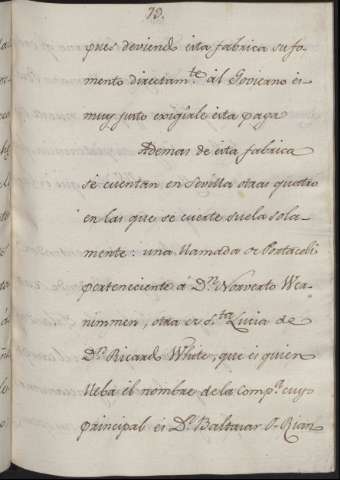 19.
pues deviendo esta fabrica su fo-
mento directam.te al Govierno es
muy justo exigirle esta paga
Ademas de esta fabrica
se cuentan en Sevilla otras quatro
en las que se curte suela sola-
mente: una llamada de Portaceli
perteneciente á D.n Norverto Wer-
nimmen, otra es S.ta Lucia de
D.n Ricard White, que es quien
lleba el nombre de la Comp.a cuyo
principal es D.n Baltasar O-Rian